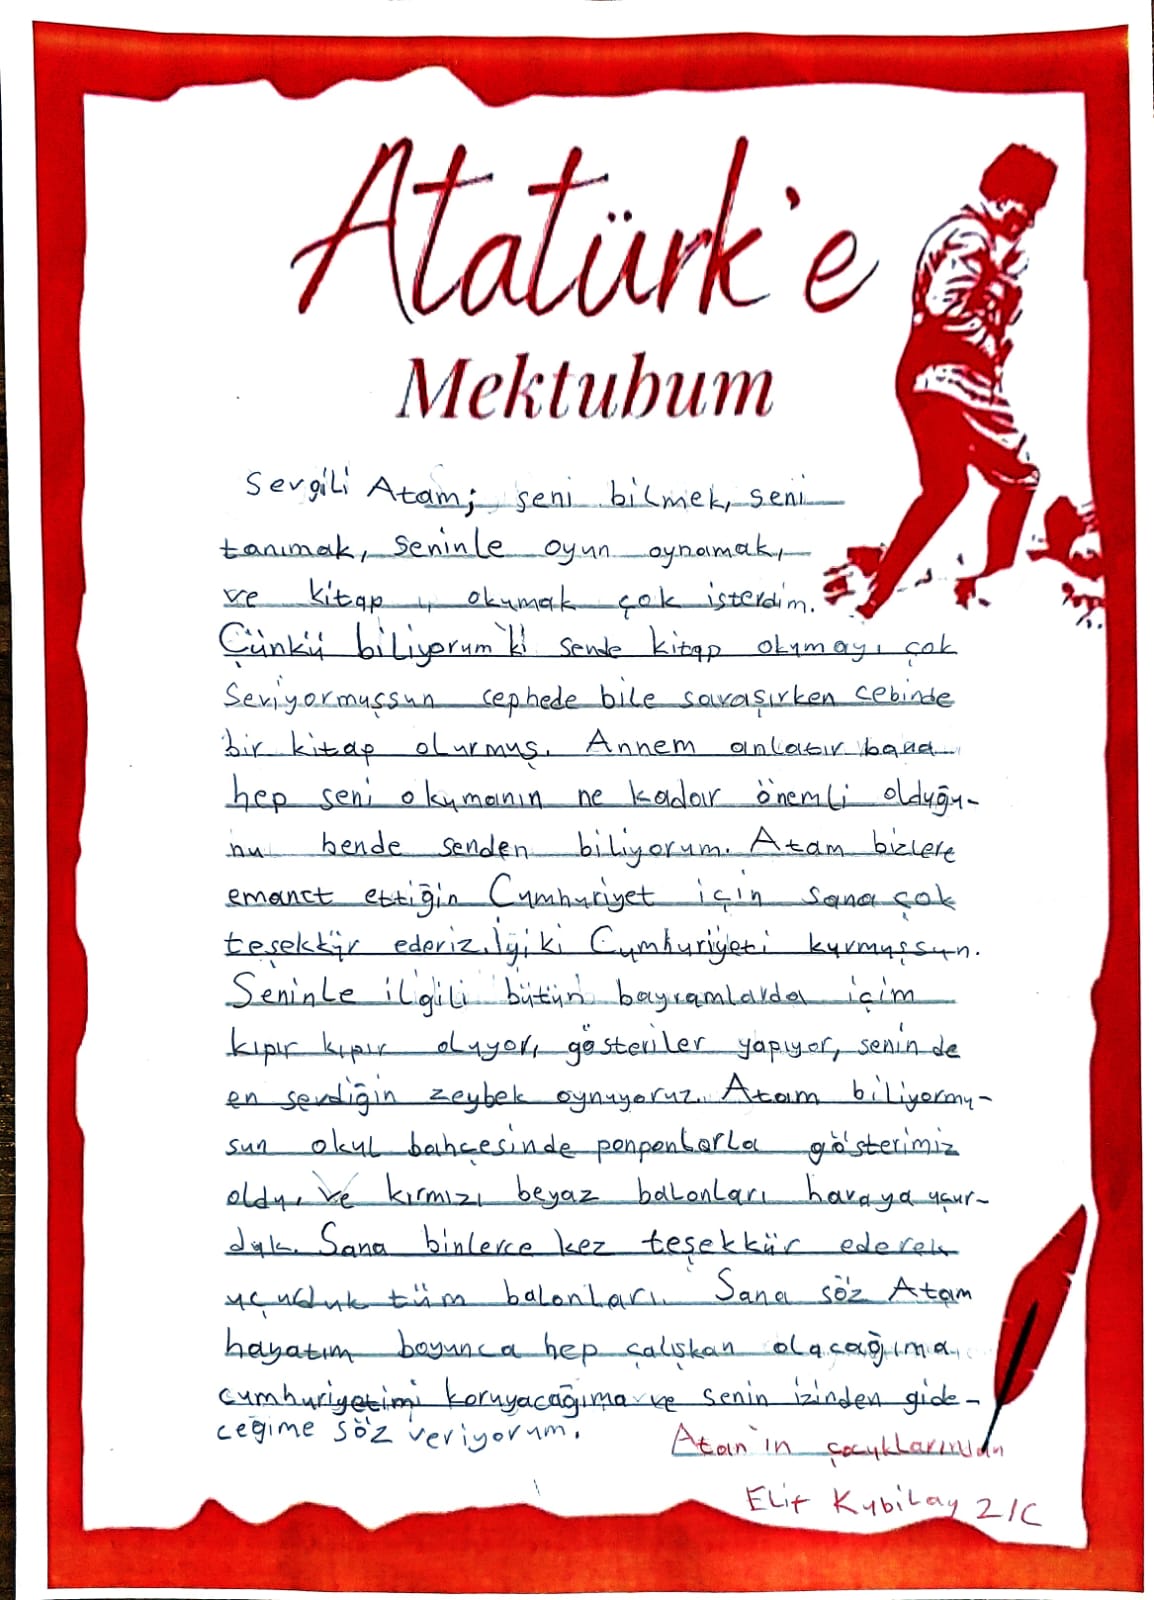 Atatürk'e
Mektubum
Sevgili Atam; seni bilmek, seni
tanımak, seninle oyun oynamak,
ve kitap, okumak çok isterdim.
Çünkü biliyorum ki sende kitap okumayı çok
Seviyormuşsun cephede bile savaşırken cebinde
bir kitap olurmuş. Annem anlatır bana
hep seni okumanın ne kadar önemli olduğu-
nu bende senden biliyorum. Atam bizlere
emanet ettiğin Cumhuriyet için sana çok
teşekkür ederiz. İyiki Cumhuriyeti kurmuşsun.
Seninle ilgili bütün bayramlarda içim
kıpır kıpır oluyor, gösteriler yapıyor, senin de
en sevdiğin zeybek oynuyoruz. Atam biliyormu-
sun okul bahçesinde ponponlarla gösterimiz
oldu, ve kırmızı beyaz balonları havaya uçur-
duk. Sana binlerce kez teşekkür ederek
uçurduk tüm balonları. Sana söz Atam
hayatım boyunca hep çalışkan olacağıma,
cumhuriyetimi koruyacağıma ve senin izinden gide-
ceğime söz veriyorum.
Atan'ın çocuklarından
Elif Kubilay 2/C